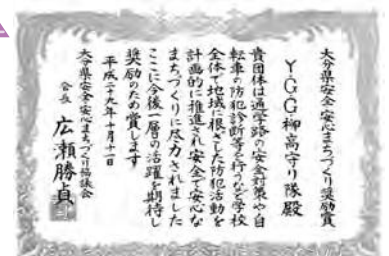 大分県安全・安心まちづくり奨励賞
Y・G・G柳高守り隊 殿
貴団体は通学路の安全対策や自
転車の防犯診断等を行うなど学校
全体で地域に根ざした防犯活動を
計画的に推進され安全で安心な
まちづくりに尽力されました
ここに今後一層の活躍を期待し
奨励のため賞します
平成二十九年十月十一日
大分県安全・安心まちづくり協議会
会長 広瀬勝貞